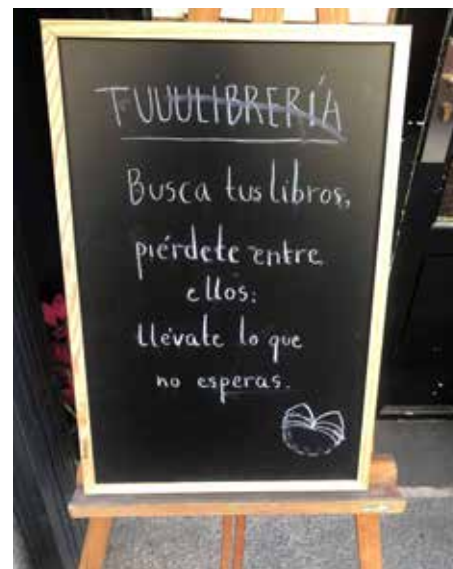 TUUULIBRERÍA
Busca tus libros,
piérdete entre
ellos:
llévate lo que
no esperas.